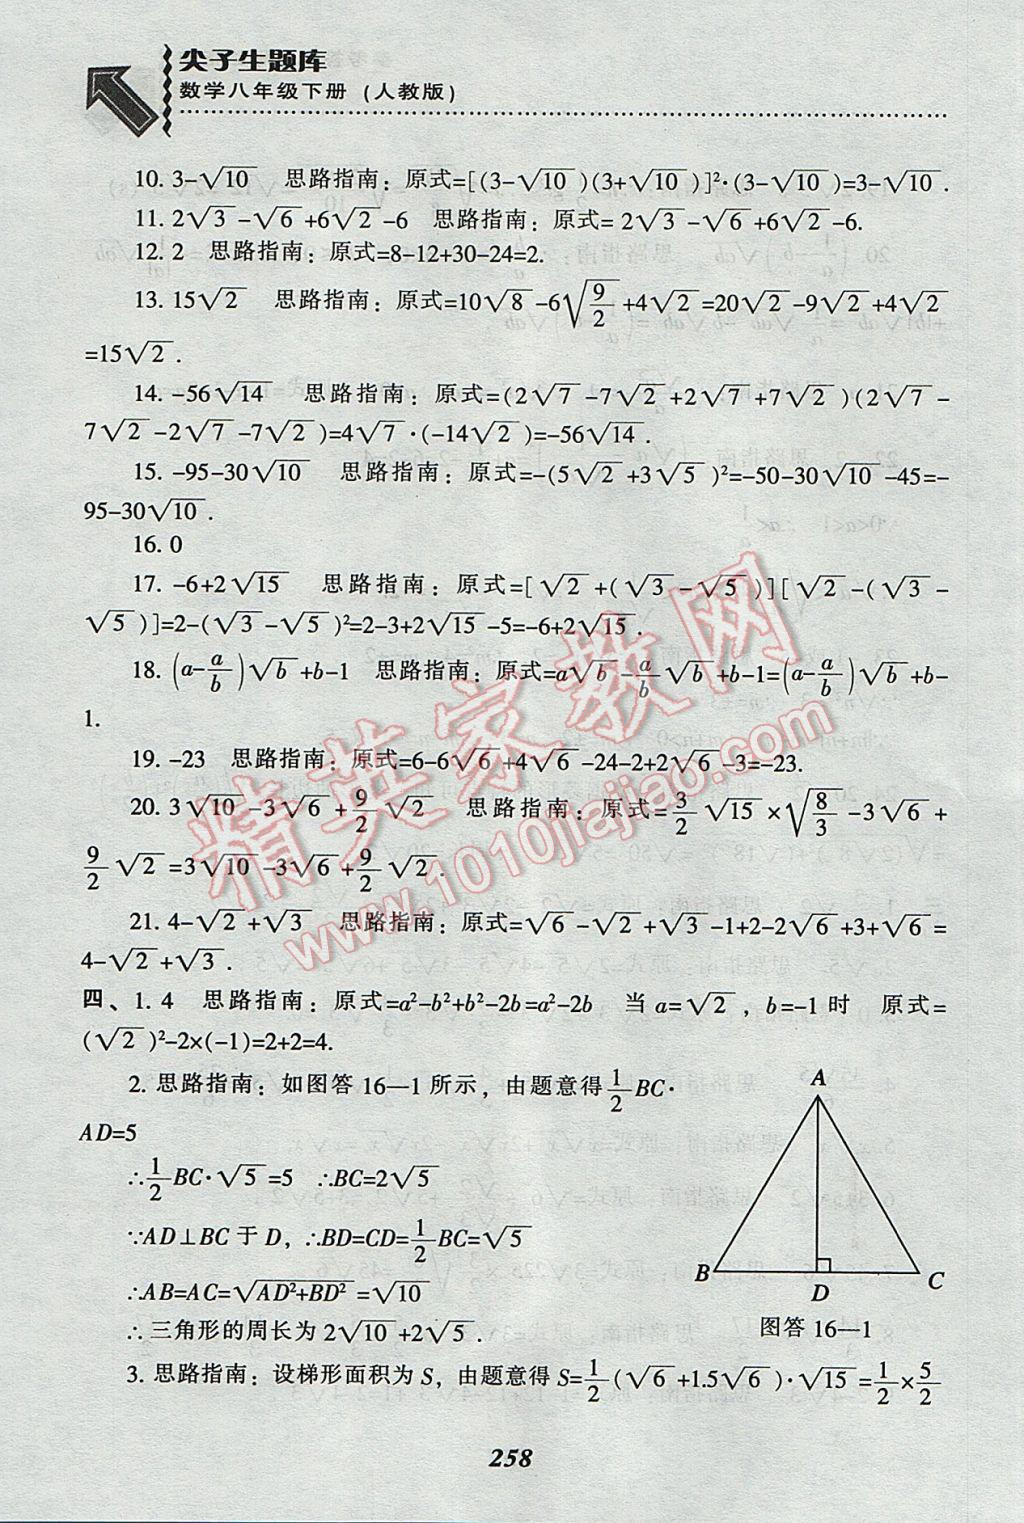 尖子生题库
数学八年级下册 (人教版)
10. 3-√10 思路指南：原式=[(3-√10)(3+√10)]²·(3-√10)=3-√10.
11. 2√3-√6+6√2-6 思路指南：原式=2√3-√6+6√2-6.
12. 2 思路指南：原式=8-12+30-24=2.
13. 15√2 思路指南：原式=10√8-6√(9/2)+4√2=20√2-9√2+4√2
=15√2.
14. -56√14 思路指南：原式=(2√7-7√2+2√7+7√2)(2√7-
7√2-2√7-7√2)=4√7·(-14√2)=-56√14.
15. -95-30√10 思路指南：原式=-(5√2+3√5)²=-50-30√10-45=-
95-30√10.
16. 0
17. -6+2√15 思路指南：原式=[√2+(√3-√5)][√2-(√3-
√5)]=2-(√3-√5)²=2-3+2√15-5=-6+2√15.
18. (a-a/b)√b+b-1 思路指南：原式=a√b-a/b√b+b-1=(a-a/b)√b+b-
1.
19. -23 思路指南：原式=6-6√6+4√6-24-2+2√6-3=-23.
20. 3√10-3√6+9/2√2 思路指南：原式=3/2√15×√(8/3)-3√6+
9/2√2=3√10-3√6+9/2√2.
21. 4-√2+√3 思路指南：原式=√6-√2+√3-1+2-2√6+3+√6=
4-√2+√3.
四、1. 4 思路指南：原式=a²-b²+b²-2b=a²-2b 当a=√2，b=-1时 原式=
(√2)²-2×(-1)=2+2=4.
2. 思路指南：如图答16—1所示，由题意得1/2BC·
AD=5
∴1/2BC·√5=5 ∴BC=2√5
∵AD⊥BC于D，∴BD=CD=1/2BC=√5
∴AB=AC=√(AD²+BD²)=√10
∴三角形的周长为2√10+2√5.
A
B
D
C
图答16—1
3. 思路指南：设梯形面积为S，由题意得S=1/2(√6+1.5√6)·√15=1/2×5/2
258
精英家教网
www.1010jiajiao.com